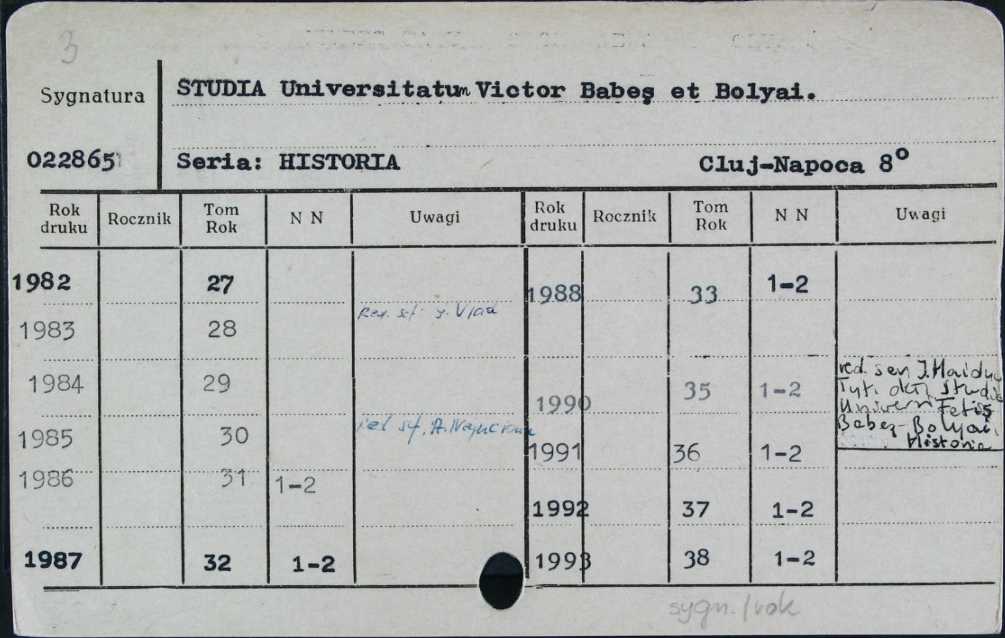 3
Sygnatura
STUDIA Universitatum Victor Babeş et Bolyai.
022865
Seria: HISTORIA Cluj-Napoca 8°
Rok druku Rocznik Tom Rok N N Uwagi Rok druku Rocznik Tom Rok N N Uwagi
1982 27 1988 33 1-2
1983 28 Vlad
1984 29 1990 35 1-2 red. J. Haiduc
Tyt. Studia
Babeş-Bolyai,
Historia
1985 30 1991 36 1-2
1986 31 1-2
1992 37 1-2
1987 32 1-2 1993 38 1-2
sygn./rok